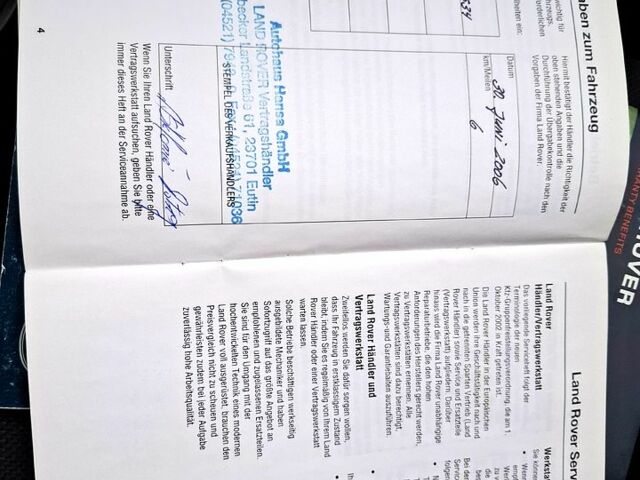 aben zum Fahrzeug
wichtig für
hrzeugs,
forderlichen
lheiten ein:
534
Hiermit bestätigt der Händler die Richtigkeit der
oben stehenden Angaben und die
Durchführung der Übergabekontrolle nach den
Vorgaben der Firma Land Rover.
Datum
30. Juni 2006
km/Meilen
6
STEMPEL DES VERKAUFSHÄNDLERS
Autohaus Hansa GmbH
LAND ROVER Vertragshändler
becker Landstraße 61, 23701 Eutin
(04521)
Unterschrift
Wenn Sie Ihren Land Rover Händler oder eine
Vertragswerkstatt aufsuchen, geben Sie bitte
immer dieses Heft an der Serviceannahme ab.
4
ANTY BENEFITS
OVER
Land Rover Serv
Land Rover
Händler/Vertragswerkstatt
Das vorliegende Serviceheft folgt der
Terminologie der neuen
Kfz-Gruppenfreistellungsverordnung, die am 1.
Oktober 2002 in Kraft getreten ist.
Die Land Rover Händler in der Europäischen
Union werden ihre Geschäftstätigkeit nach und
nach in die getrennten Sparten Vertrieb (Land
Rover Händler) sowie Service und Ersatzteile
(Vertragswerkstatt) aufgliedern. Darüber
hinaus wird die Firma Land Rover unabhängige
Reparaturbetriebe, die den hohen
Anforderungen des Herstellers gerecht werden,
zu Vertragswerkstätten ernennen. Alle
Vertragswerkstätten sind dazu berechtigt,
Wartungs- und Garantiearbeiten auszuführen.
Land Rover Händler und
Vertragswerkstatt
Zweifellos werden Sie dafür sorgen wollen,
dass Ihr Fahrzeug in erstklassigem Zustand
bleibt, indem Sie es regelmäßig von Ihrem Land
Rover Händler oder einer Vertragswerkstatt
warten lassen.
Solche Betriebe beschäftigen werkseitig
ausgebildete Mechaniker und haben
Sofortzugriff auf das größte Angebot an
empfohlenen und zugelassenen Ersatzteilen.
Sie sind für den Umgang mit der
hochentwickelten Technik eines modernen
Land Rover voll ausgerüstet, brauchen den
Preisvergleich nicht zu scheuen und
gewährleisten zudem bei jeder Aufgabe
zuverlässig hohe Arbeitsqualität.
Werksta
Sie könne
• Wenn